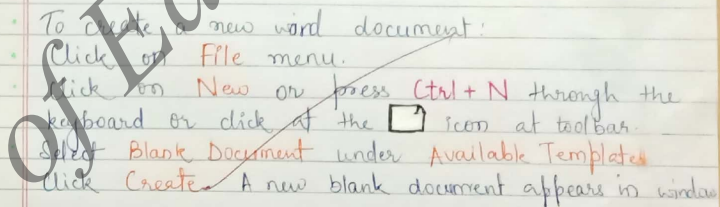 To create a new word document:
Click on File menu.
Click on New or press Ctrl + N through the
keyboard or click at the icon at toolbar.
Select Blank Document under Available Templates
Click Create. A new blank document appears in window
of Ed